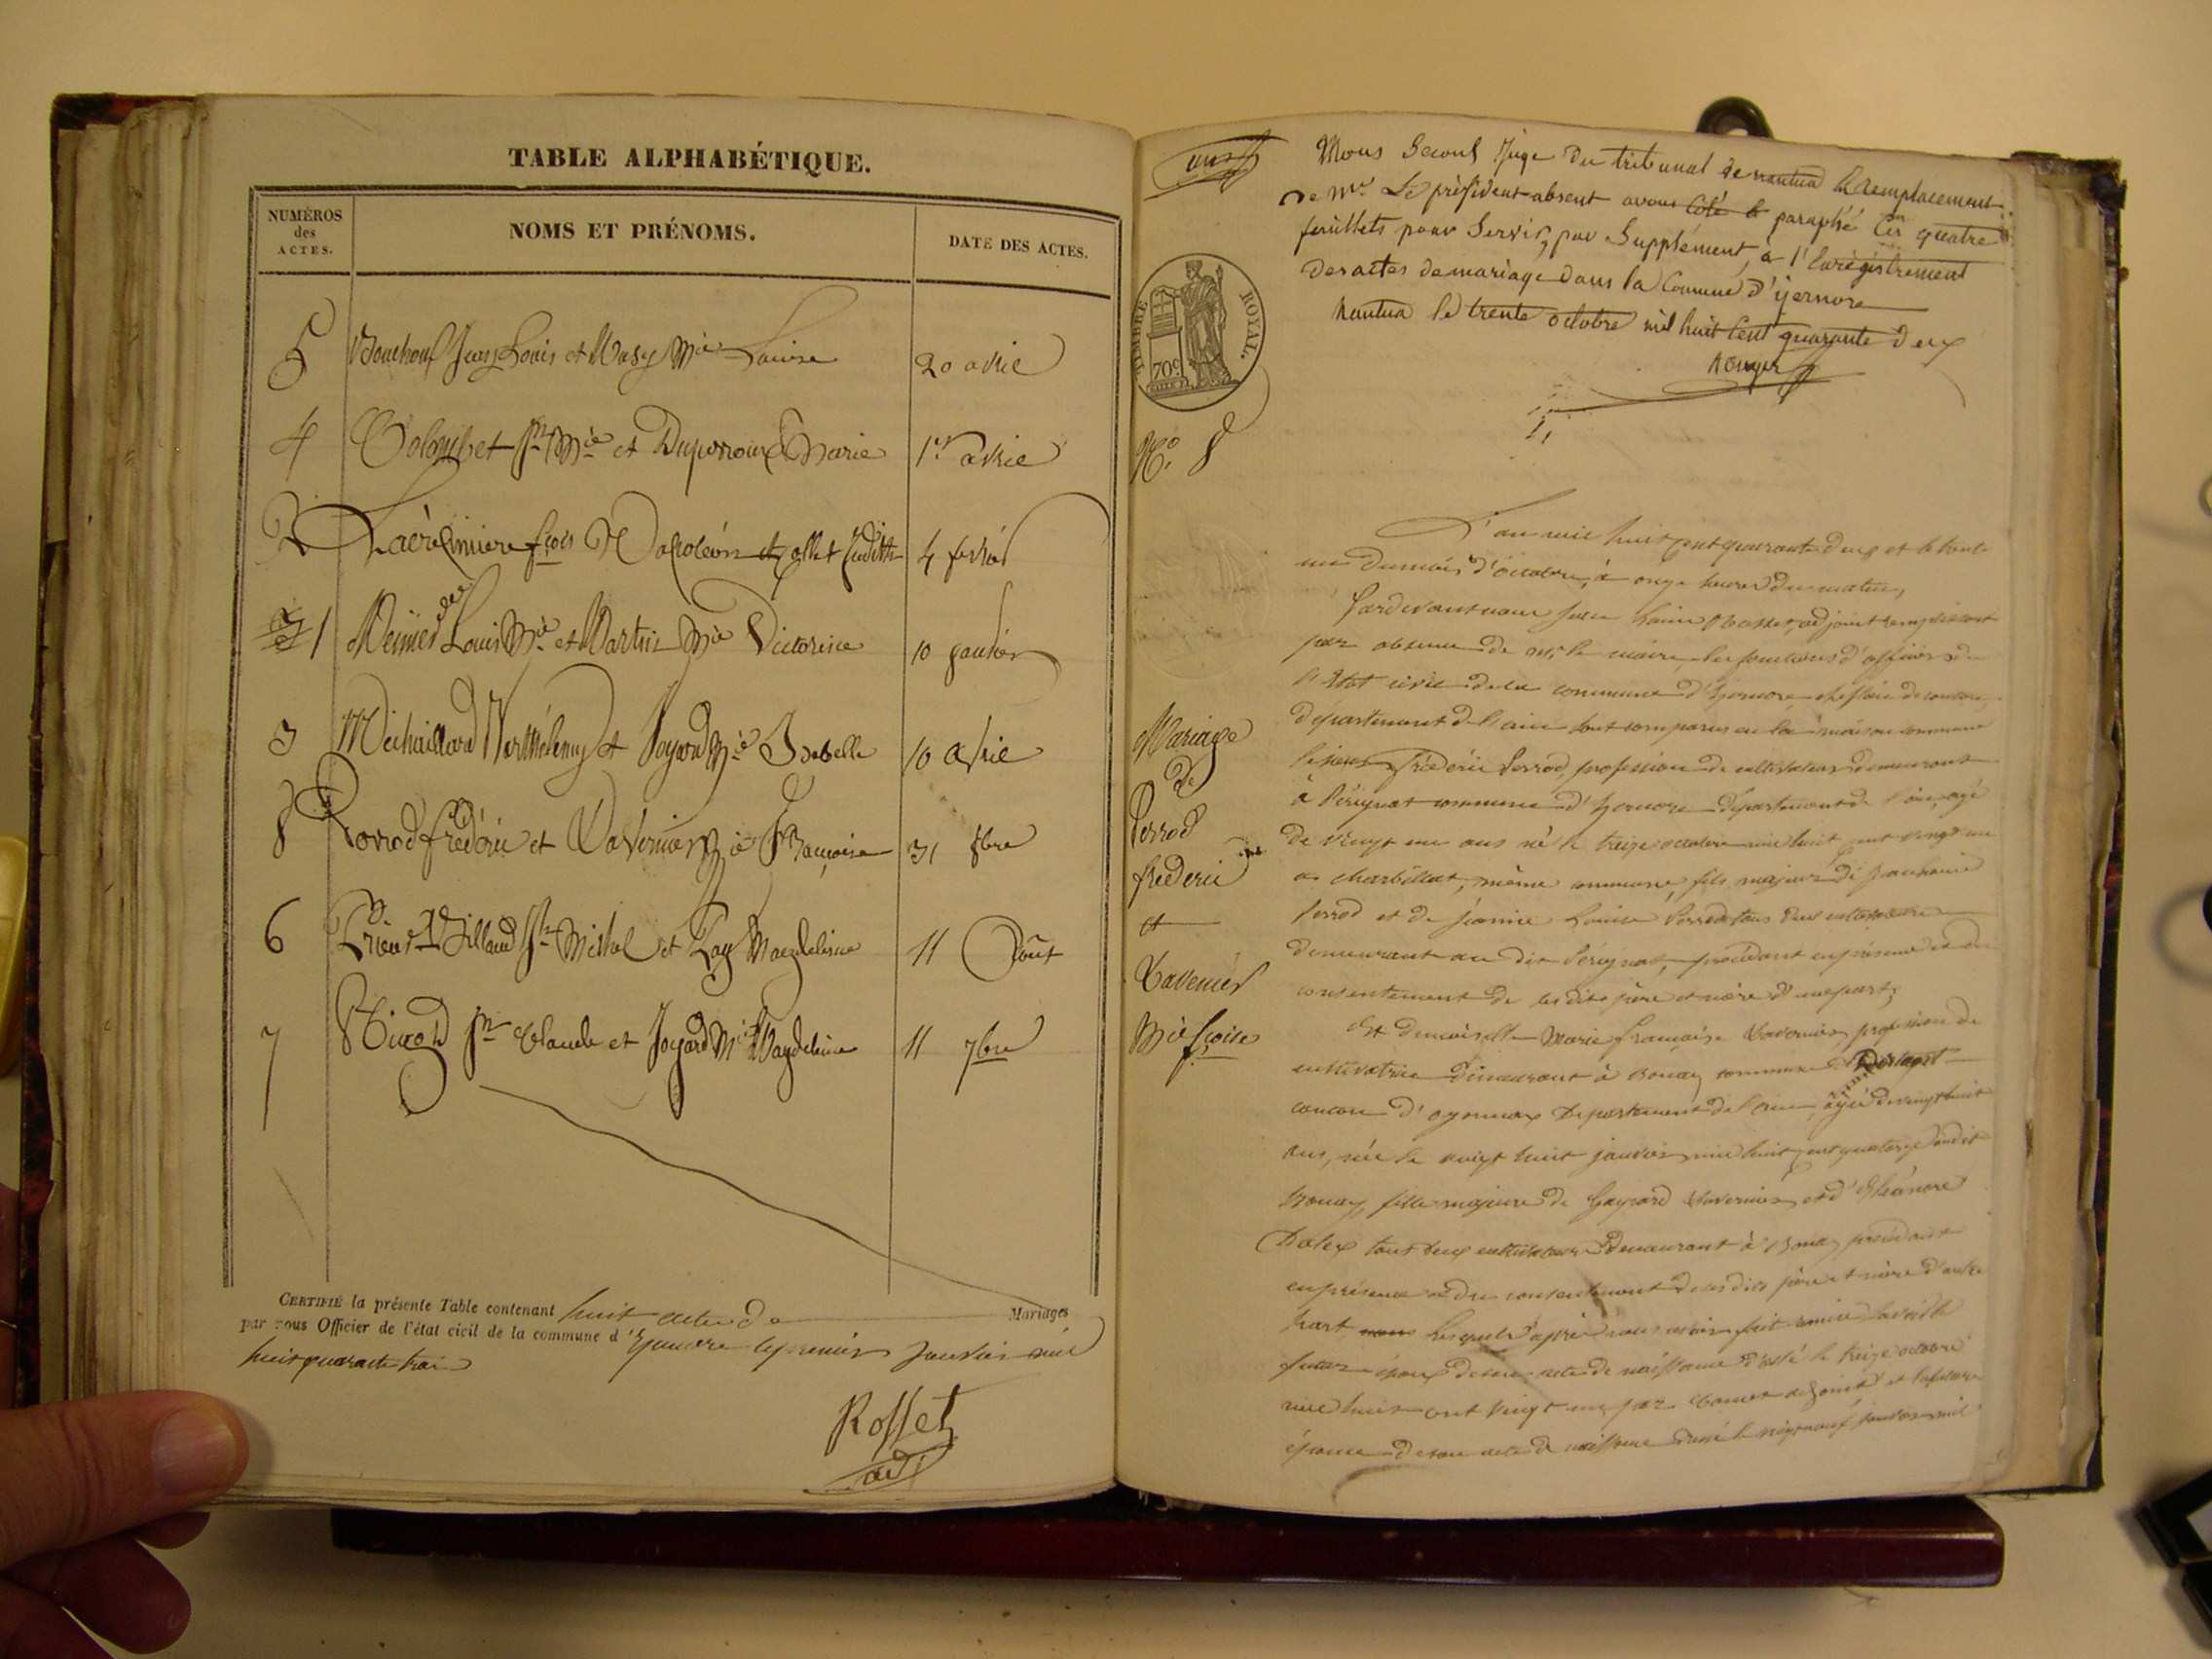 TABLE ALPHABÉTIQUE.
NUMÉROS des ACTES.
NOMS ET PRÉNOMS.
DATE DES ACTES.
5 Jean Louis et Mie Louise 20 avril
4 Jn Mie et Duperroux Marie 1er avril
2 fçois Napoléon et Collet Judith 4 février
1 Louis Mie et Martin Mie Victorine 10 janvier
3 Michaillard Berthélemy et Joyard Mie Isabelle 10 avril
8 Perrod frédéric et Tavernier Mie Françoise 31 8bre
6 Jn Michel et Magdeleine 11 Août
7 Jn Claude et Joyard Mie Magdeleine 11 7bre
CERTIFIÉ la présente Table contenant huit actes de Mariages
par nous Officier de l'état civil de la commune d'Yzernore le premier janvier mil
huit quarante trois
Rosset
adj
Nous Second Juge du tribunal de nantua en Remplacement
de Mr Le président absent avons Coté et paraphé Ces quatre
feuillets pour Servir, par Supplément, à l'Enrégistrement
des actes de mariage dans la Commune d'yzernore
Nantua le trente octobre mil huit Cent quarante deux
TIMBRE ROYAL.
70c
No. 8
Mariage
de
Perrod
frédéric
et
Tavernier
Mie fçoise
L'an mil huit cent quarante deux et le trente
un du mois d'octobre, à onze heures du matin,
Pardevant nous Rosset, adjoint remplissant
par absence de Mr le maire les fonctions d'officier de
l'Etat civil de la commune d'Yzernore, chef lieu de canton,
département de l'ain sont comparus en la maison commune
le sieur frédéric Perrod, profession de cultivateur demeurant
à Pérignat commune d'Yzernore département de l'ain, agé
de vingt un ans né le treize octobre mil huit cent vingt un
à charbillat, même commune, fils majeur de
Perrod et de Louise Perrod tous deux cultivateurs
demeurant au dit Pérignat, procédant en présence et du
consentement de ses dits père et mère d'une part;
Et demoiselle Marie françoise Tavernier, profession de
cultivatrice demeurant à Bouay commune de Dortant
canton d'oyonnax département de l'ain, agée de vingt huit
ans, née le vingt huit janvier mil huit cent quatorze audit
Bouay, fille majeure de Gaspard Tavernier et d'Eléanore
tous deux cultivateurs demeurant à Bouay procédant
en présence et du consentement de ses dits père et mère d'autre
part Lesquels après nous avoir fait remise savoir le
futur époux de son acte de naissance daté le treize octobre
mil huit cent vingt un par adjoint et la future
épouse de son acte de naissance daté le vingt neuf janvier mil